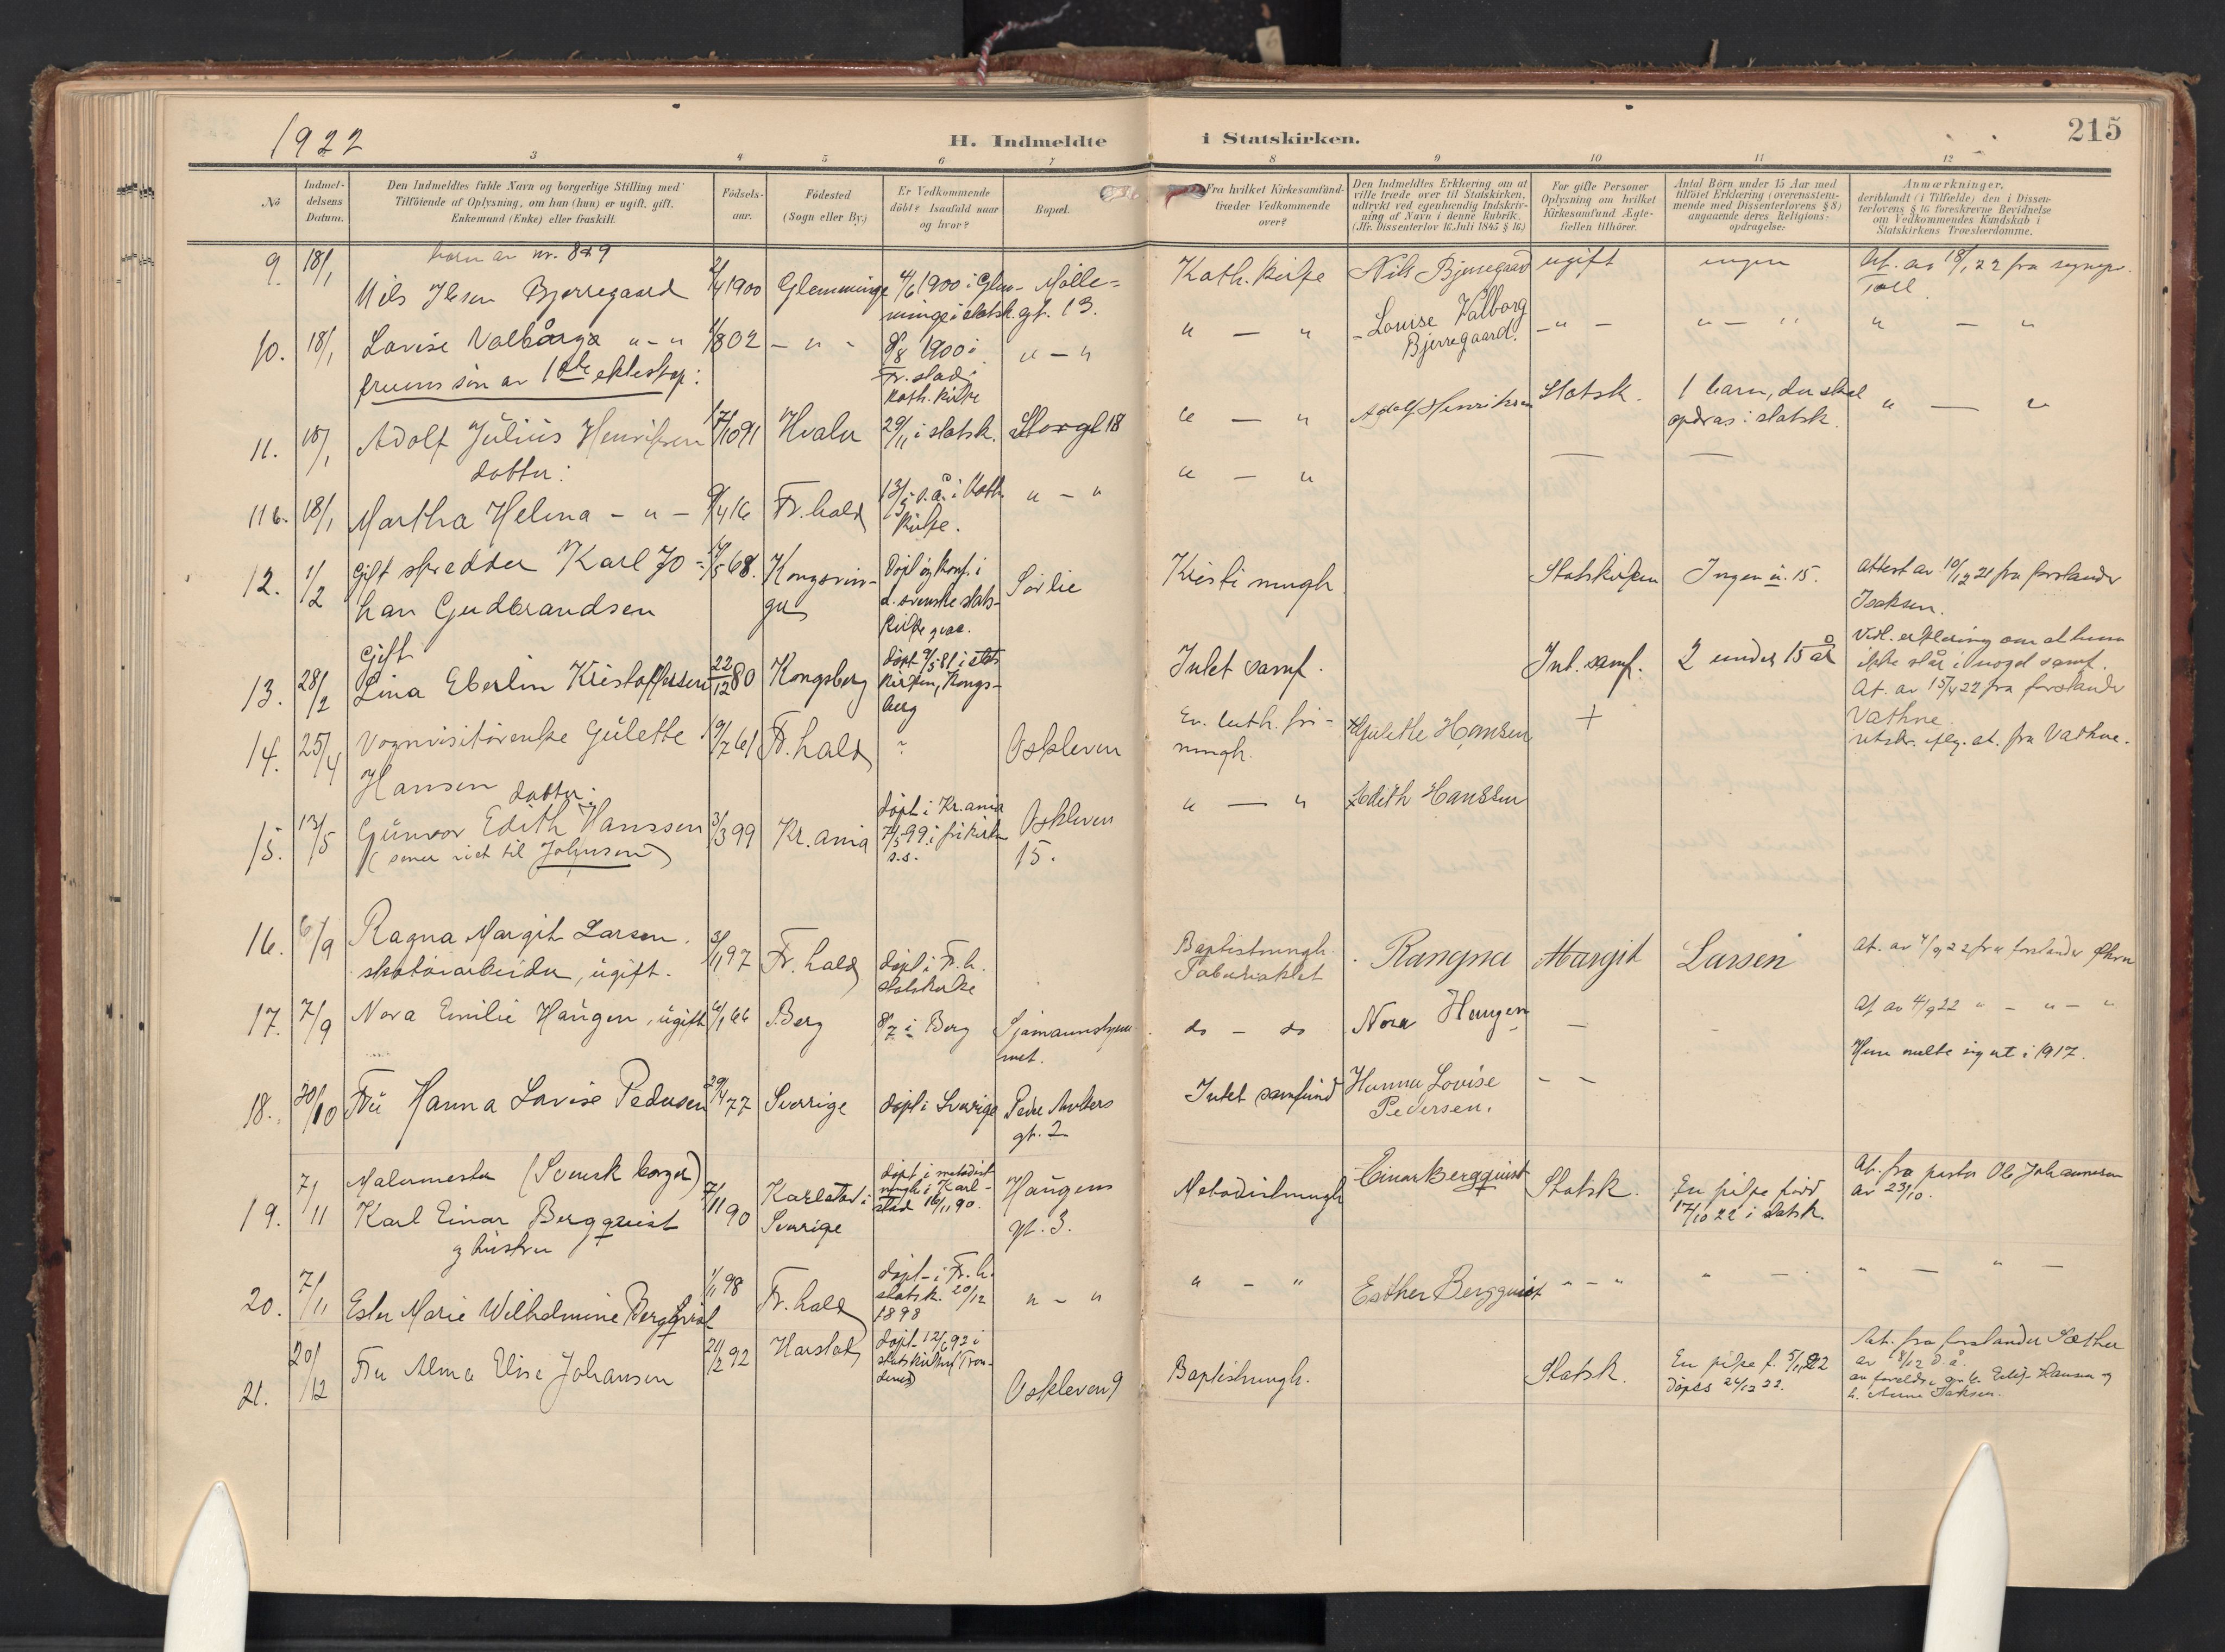 1922
H. Indmeldte i Statskirken.
215
3 4 5 6 7 8 9 10 11 12
No
Indmeldelsens Datum.
Den Indmeldtes fulde Navn og borgerlige Stilling med
Tilföiende af Oplysning, om han (hun) er ugift, gift,
Enkemand (Enke) eller fraskilt.
Födselsaar.
Födested
(Sogn eller By.)
Er Vedkommende
döbt? Isaafald naar
og hvor?
Bopæl.
Fra hvilket Kirkesamfund
træder Vedkommende
over?
Den Indmeldtes Erklæring om at
ville træde over til Statskirken,
udtrykt ved egenhændig Indskrivning af Navn i denne Rubrik.
(Jfr. Dissenterlov 16. Juli 1845 § 16.)
For gifte Personer
Oplysning om hvilket
Kirkesamfund Ægtefællen tilhörer.
Antal Börn under 15 Aar med
tilföiet Erklæring (overensstemmende med Dissenterlovens § 8)
angaaende deres Religionsopdragelse.
Anmærkninger,
deriblandt (i Tilfælde) den i Dissenterlovens § 16 foreskrevne Bevidnelse
om Vedkommendes Kundskab i
Statskirkens Troeslærdomme.
barn av nr. 8 & 9
9. 18/1 Nils Bjerregaard 1900 Glemminge 4/6 1900 i Glemminge i statsk. Möllegt. 13. Kath. kirke Nils Bjerregaard ugift ingen At. av 18/1 22 fra
10. 18/1 Lovise Valborg " - " 02 - " - 1900 i Fr.stad i kath. kirke " - " " - " Louise Valborg Bjerregaard. - " - " - " " - "
fruens sön av 1ste ekteskap:
11. 18/1 Adolf Julius Henriksen 17/10 91 Hvaler 29/11 i statsk. Storgt 18 " - " Adolf Henriksen Statsk. 1 barn, der skal opdras i statsk. " - "
datter:
11 b. 18/1 Martha Helena - " - 9/4 16 Fr.hald 13/5 s.å. i Kath. kirke. " - " " - " — —
12. 1/2 Gift skrædder Karl Johan Gudbrandsen 68. Kongsvinger Döpt og konf. i d. svenske statskirke Sörlie Kristi menigh. Statskirken Ingen u. 15. Attest av 10/12 21 fra forstander Isaksen.
Gift
13. 28/2 Lina Eberlin Kristoffersen 22/12 80 Kongsberg Döpt 81 i statskirken, Kongsberg Intet samf. Int. samf. 2 under 15 år Vedl. erklæring om at hun ikke står i noget samf.
14. 25/4 Vognvisitörenke Gulette Hansen 19/7 61 Fr.hald ? Oskleven Ev. luth. frimenigh. Gulette Hansen + At. av 15/4 22 fra forstander Vathne.
datter:
15. 13/5 Gunvor Edith Hanssen 3/3 99 Kr.ania döpt i Kr.ania 99 i frikirken s.s. Oskleven 15. " - " Edith Hanssen utskr. iflg. at. fra Vathne.
(senere viet til Johnsen)
16. 6/9 Ragna Margit Larsen. skotöiarbeider, ugift. 97 Fr.hald döpt i Fr.h. statskirke Baptistmenigh. Tabernaklet Rangna Margit Larsen At. av 4/9 22 fra forstander Öhrn
17. 7/9 Nora Emilie Haugen, ugift 66 Berg i Berg Sjömannshjemmet. do - do Nora Haugen — At av 4/9 22 " - " - "
18. 30/10 Fru Hanna Lovise Pedersen 29/4 77 Sverrige döpt i Sverige Peder Ankers gt. 2 Intet samfund Hanna Lovise Pedersen. - - Hun meldte sig ut i 1917.
19. 7/11 Malermester (Svensk borger) Karl Einar Bergquist 7/11 90 Karlstad i Sverige döpt i metodistmenigh. i Karlstad 16/11 90. Haugens gt. 3. Metodistmenigh. Einar Bergquist Statsk. En pike född 17/10 22 i statsk. At. fra pastor Ole Johannesen av 23/10.
g hustru
20. 7/11 Ester Marie Wilhelmine Bergquist 98 Fr.hald döpt i Fr.h. statsk. 20/12 1898 " - " " - " Esther Bergquist " - " " - " - " -
21. 20/12 Fru Alma Elise Johansen 92 Harstad döpt 12/6 92 i statskirken Trondenes Oskleven 9 Baptistmenigh. Statsk. En pike f. 22 döpes 24/12 22. At. fra forstander Sæther av 18/12 d.å.